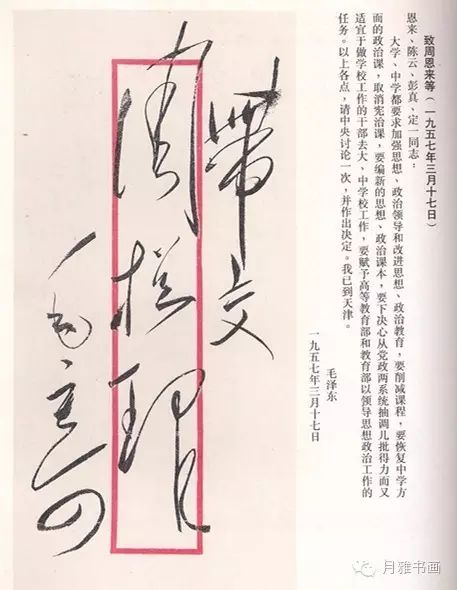 致周恩来等（一九五七年三月十七日）
恩来、陈云、彭真、定一同志：
大学、中学都要求加强思想、政治领导和改进思想、政治教育，要削减课程，要恢复中学方
面的政治课，取消宪治课，要编新的思想、政治课本，要下决心从党政两系统抽调几批得力而又
适宜于做学校工作的干部去大、中学校工作，要赋予高等教育部和教育部以领导思想政治工作的
任务。以上各点，请中央讨论一次，并作出决定。我已到天津。
毛泽东
一九五七年三月十七日
带交
周总理
毛寄
月雅书画